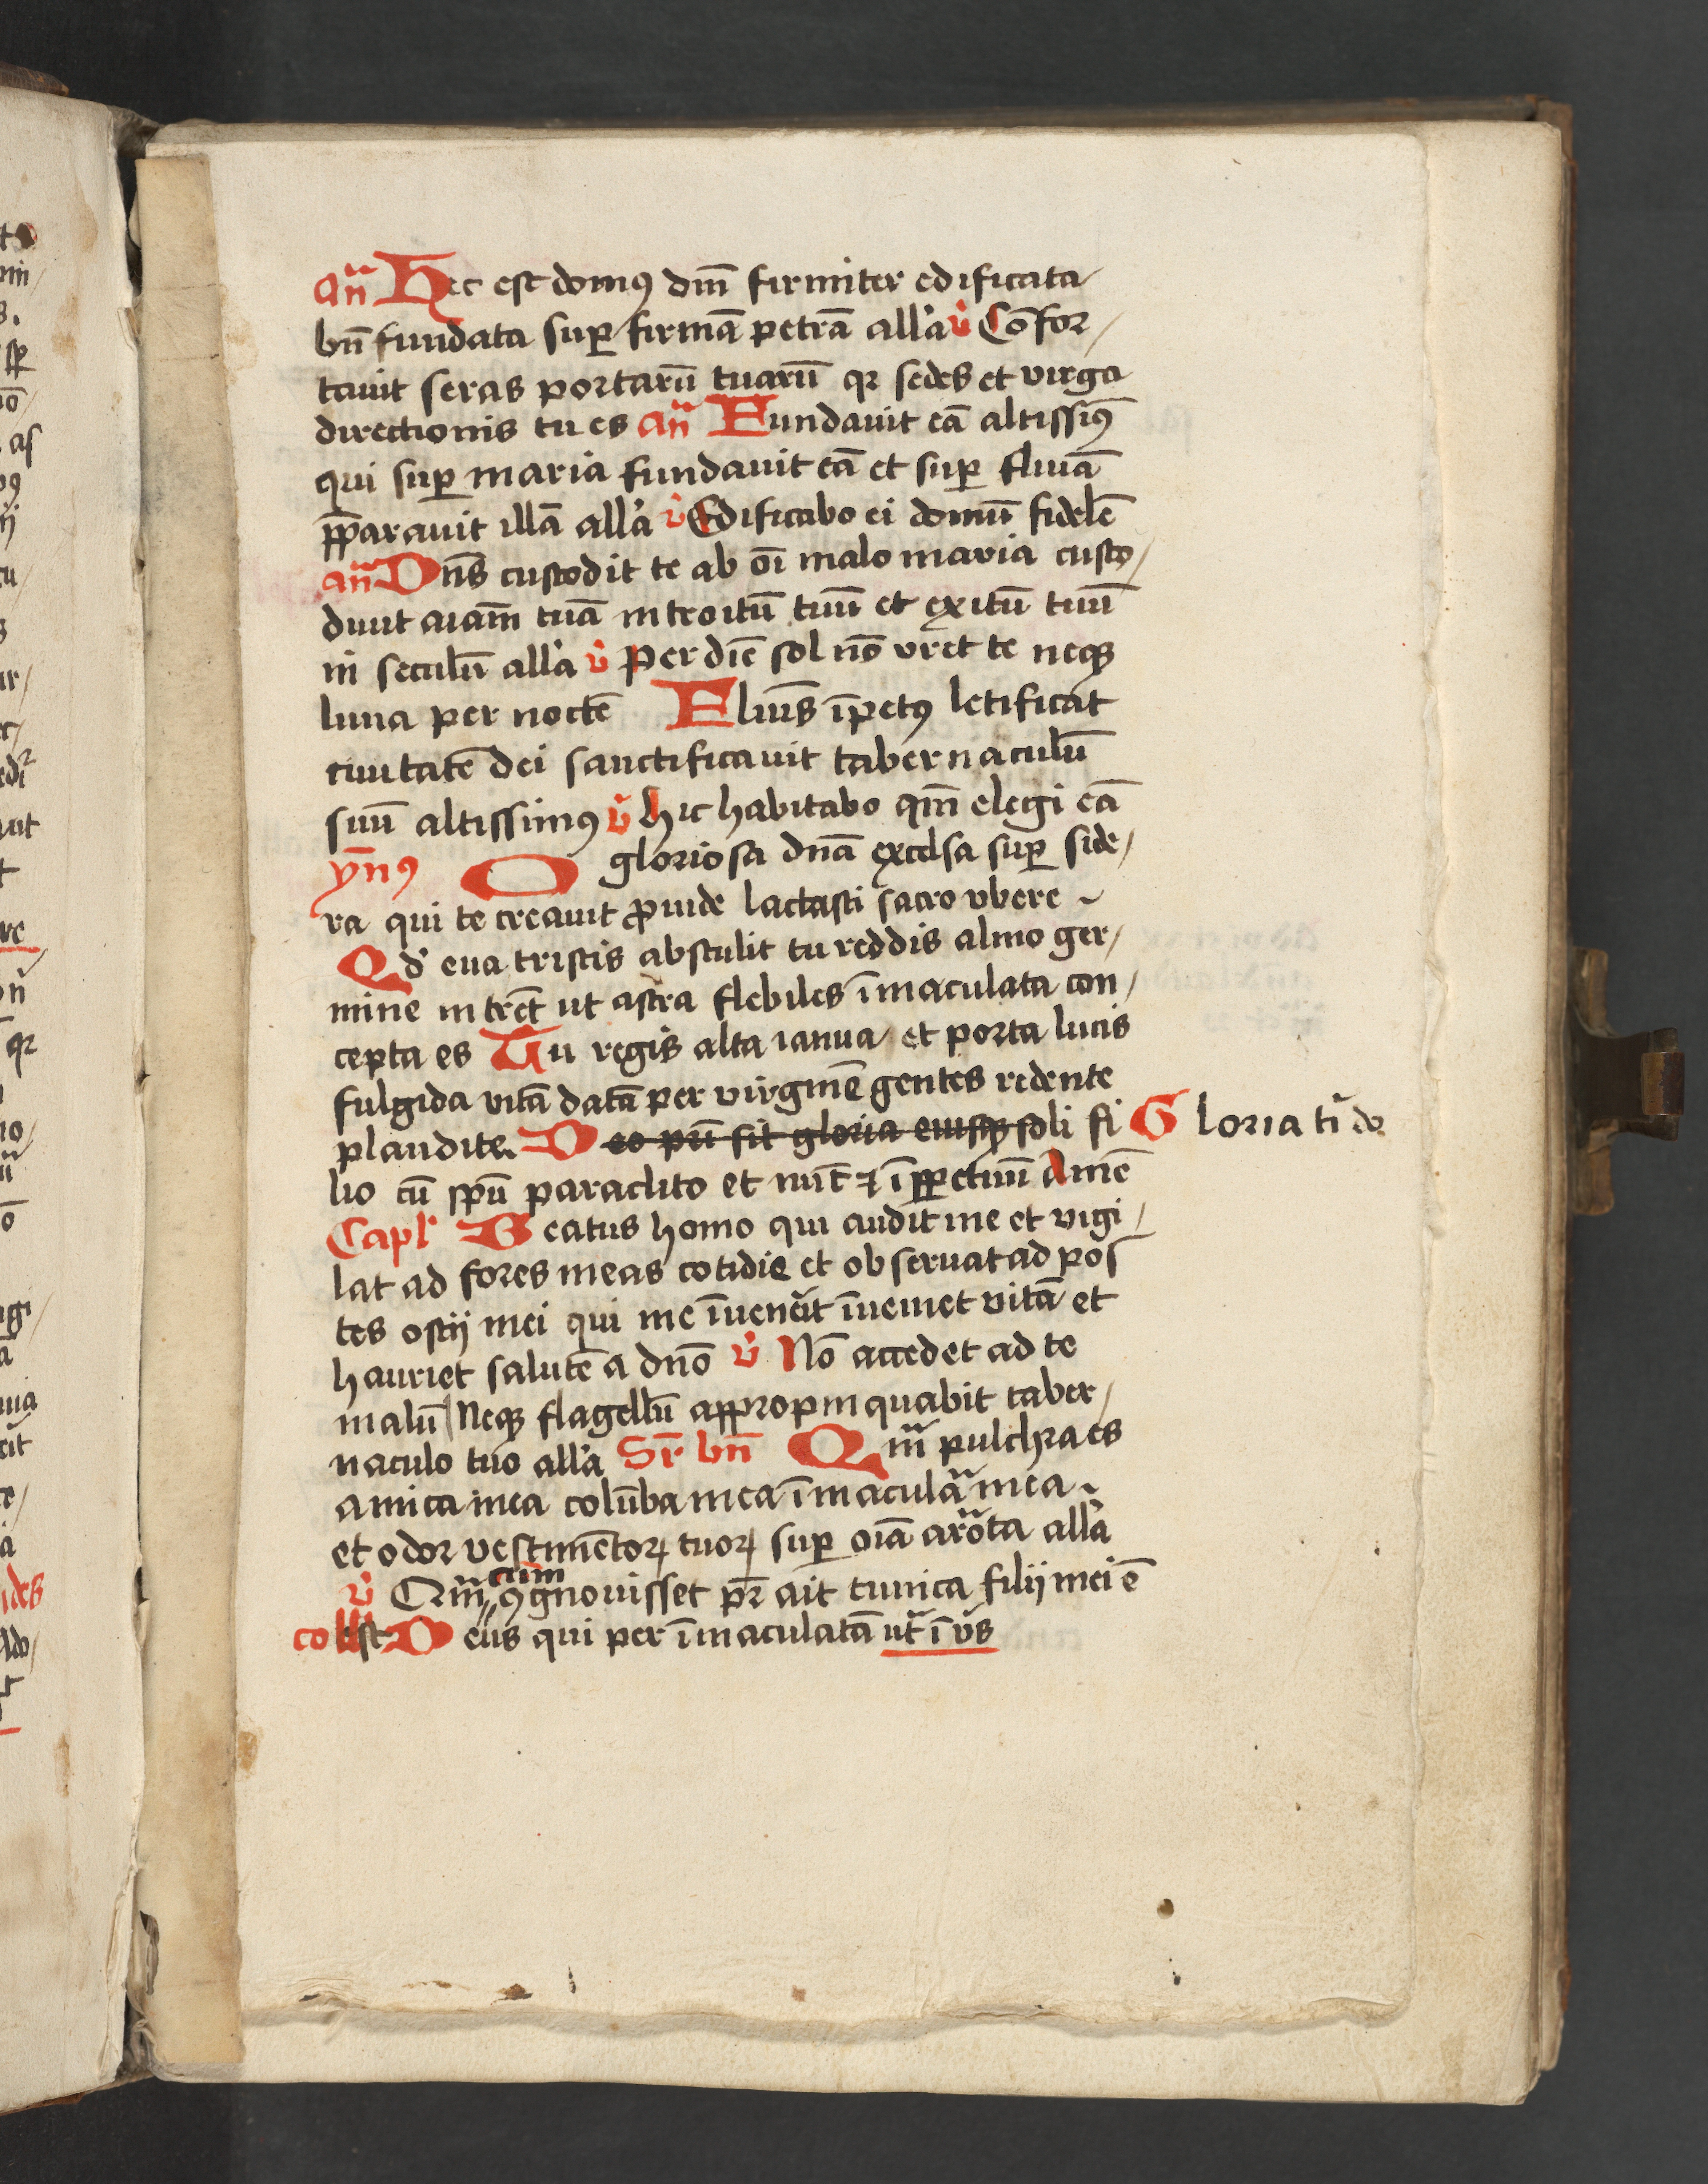 an̄ Hec est domꝰ dn̄i firmiter edificata
bn̄ fundata suꝑ firmā petrā all'a v̓ Cōfor/
tauit seras portarū tuarū qꝛ sedes et virga
directionis tu es an̄ Fundauit eā altissiꝰ
qui suꝑ maria fundauit eā et suꝑ fluiā
p̄parauit illā all'a v̓ Edificabo ei domū fidelē
an̄ Dn̄s custodit te ab oī malo maria custo/
diuit aiam̄ tuā introitū tuū et exitū tuū
in seculū all'a v̓ Per diē sol nō vret te neqꝫ
luna per noctē Fluuīs īpetꝰ letificat
ciuitatē dei sanctificauit tabernaculū
suū altissimꝰ v̓ hic habitabo qm̄ elegi eā
ym̄nꝰ O gloriosa dn̄a excelsa suꝑ side/
ra qui te creauit ꝓuide lactasti sacro vbere
Qd̓ eua tristis abstulit tu reddis almo ger/
mine intrēt ut astra flebiles īmaculata con/
cepta es Tu regis alta ianua et porta lucis
fulgida vitā datā per virginē gentes redente
plaudite. Deo pr̄i sit gloria eiusqꝫ soli fi Gloria ti do
lio cū spū paraclito et nūc ⁊ ī ꝑpetuū Amē
Capl' Beatus homo qui audit me et vigi/
lat ad fores meas cotidie et obseruat ad pos
tes ostij mei qui me īuenerit īueniet vitā et
hauriet salutē a dn̄o v̓ Nō accedet ad te
malū Neqꝫ flagellū appropinquabit taber/
naculo tuo all'a Sr̄ bn̄ Qm̄ pulchra es
amica mea colūba mea īmaculā mea
et odor vestimētoꝝ tuoꝝ suꝑ oīa arōta all'a
v̓ Qm̄ cum ꝯgnouisset pr̄ ait tunica filij mei ē
collest Deus qui per īmaculatā ut̄ ī vs̄